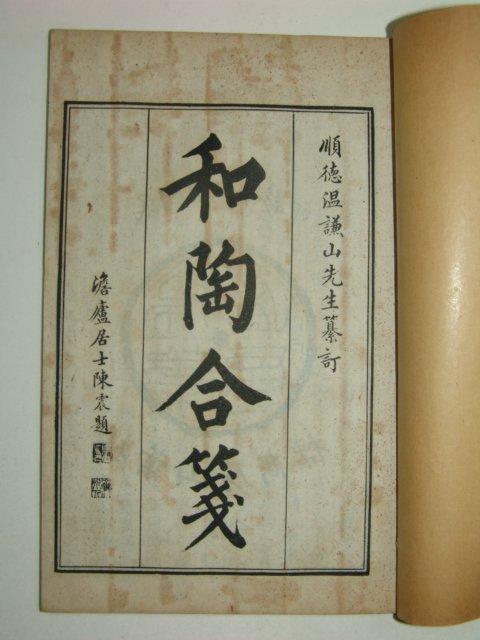 順德溫謙山先生纂訂
和陶合箋
澹廬居士陳震題